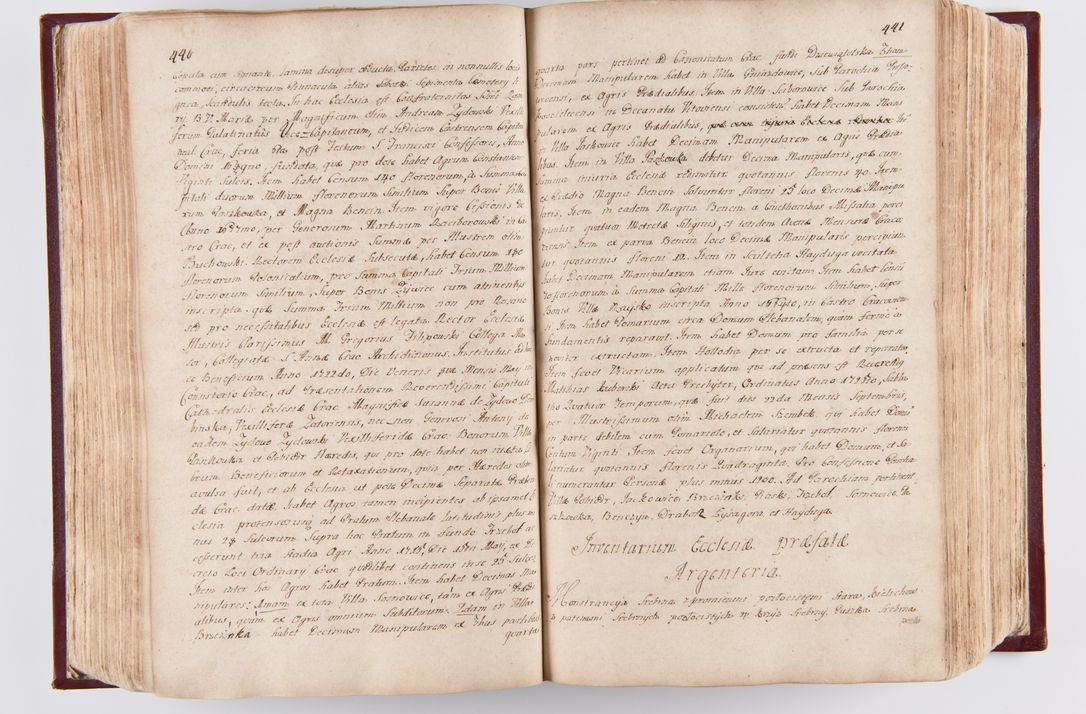 440
copula cum sonante, lamina desuper obducta, Parietes in nonnullis locis
commoti, circa eorum
gnea, scandulis tecta. In hac Ecclesia est Confraternitas SSmi Rosa-
rij B. V. Mariæ per Magnificum olim Andream Zydowski Vexilli-
ferum Palatinatûs Vice-Capitaneum, et Judicem Castrensem Capita-
neal. Crac, feria 6ta post Festum S. Francisci Confessoris, Anno
Domini fundata, quæ pro dote habet Agrum Constantem
Viginti Sulcis, Item habet Censum 140 florenorum, à Summa Ca-
pitali duorum Millium florenorum Similium Super Bonis Villa-
rum Jaszkowka, et Magna Benczin. Item vigore Cessionis de
per Generosum Martinum Raciborowski in Ca-
stro Crac, et ex post auctionis Summæ per Illustrem olim
Buchowski Rectorem Ecclesiæ Subsecutæ, habet Censum 180
florenorum Polonicalium, pro Summa Capitali Trium Millium
florenorum Similium, Super Bonis Zywiec cum attinentijs
inscripta. quæ Summa Trium Millium non pro Rosario
sed pro necessitatibus Ecclesiæ est legata. Rector Ecclesiæ
Illustris Clarissimus M. Gregorius Filipowski Collega Ma-
jor, Collegiatæ S. Annæ Crac Archidiaconus. Institutus ad hoc
ce Beneficium Anno 1722do, Die Veneris Mensis Maij in
Consistorio Crac, ad Præsentationem Reverendissimi Capituli
Cathedralis Ecclesiæ Crac Magnificæ Susannæ de Zydowo Dem-
binska, Vexilliferæ Zatoriensis, nec non Generosi Antony de
eadem Zydowo Zydowski Vexilliferidæ Crac. Bonorum Villæ
Jaszkowka et Gebiedz Hæredis, qui pro dote habet non iuxta Li-
brum Beneficiorum et Retaxationum, quia per Hæredes olim
avulsa fuit, et ab Ecclesia ut pote Decimæ Separatæ Præben-
dæ Crac. datæ. Habet Agros tamen incipientes ab ipsamet Ec-
clesia protensos usq ad Pratum Plebanale latitudinis plus mi-
nus 28 Sulcorum Supra hoc Pratum in Fundo Trzebol ac-
cesserunt tria stadia Agri Anno Die Maij, ex De-
creto Loci Ordinarij Crac quodlibet continens in se 25 Sulcos.
Item inter hos Agros habet Pratum. Item habet Decimas Ma-
nipulares: Imam ex tota Villa Sosnowice, tàm ex Agris Prædi-
alibus, quàm ex Agris omnium Subditorum. 2dam in Villa
Brzezinka habet Decimam Manipularem ex 3bus partibus
quarta

441
quarta pars pertinet ad Canonicatum Crac, fundi Dziewiątelska
Decimam Manipularem habet in Villa Gniardowice, Sub Parochia
ex Agris Prædialibus. Item in Villa Sciborowice Sub Parochia
in Decanatu Vitoviensi consistens. habet Decimam Mani-
pularem ex Agris Prædialibus,
ex Villa Jaskowice habet Decimam Manipularem ex Agris Prædia-
libus. Item in Villa Paszkowka debetur Decima Manipularis, quæ cum
Summa iniuria Ecclesiæ redimitur quotannis florenis 40. Item
ex Prædio Magna Benczin Solvuntur floreni 25 loco Decimæ Manipu-
laris. Item in eadem Magna Benczin a Cmethonibus Missalia perci-
piuntur quatuor Metretæ Siliginis, et totidem Avenæ Mensuræ Craco-
viensis. Item ex parva Benczin loco Decimæ Manipularis percipiun-
tur quotannis floreni 12. Item in Scultetia Hayduga vocitata
habet Decimam Manipularem etiam Jure evictam. Item habet Censum
70 florenorum à Summa Capitali Mille florenorum Similium, Super
Bonis Villæ inscripta Anno in Castro Cracovien-
si. Item habet Pomarium circa Domum Plebanalem, quam fermè à
fundamentis reparavit. Item habet Domum pro familia per se
noviter extructam. Item Hollodia per se extructa et reparata.
Item fovet Vicarium applicatum qui ad præsens est Reverendus
Matthias Kuberski Actu Presbyter, Ordinatus Anno Sabba-
tho Quatuor Temporum, quæ fuit dies 22da Mensis Septembris,
per Illustrissimum olim Michaelem Szembek, qui habet Domum
in parte debilem cum Pomariolo, et Salariatur quotannis florenis
Centum Viginti. Item fovet Organarium, qui habet Domum, et Sa-
lariatur quotannis florenis Quadraginta. Pro Confessione Pascha-
li numerantur Personæ plus minus 1200. Ad Parochiam pertinent
Villæ Gebiedz, Jaskowice, Brzezinka, Trzebol Sosnowice, Pa-
szkowka, Benczyn, Draboż Lysagora, et Hayduga.
Inventarium Ecclesiæ Præfatæ
Argenteria.
Monstrancya Srebrna z promieniami pozłocistymi Stara, Kielichow
z patenami Srebrnych pozłocistych Krzyż Srebrny, Puszka Srebrna